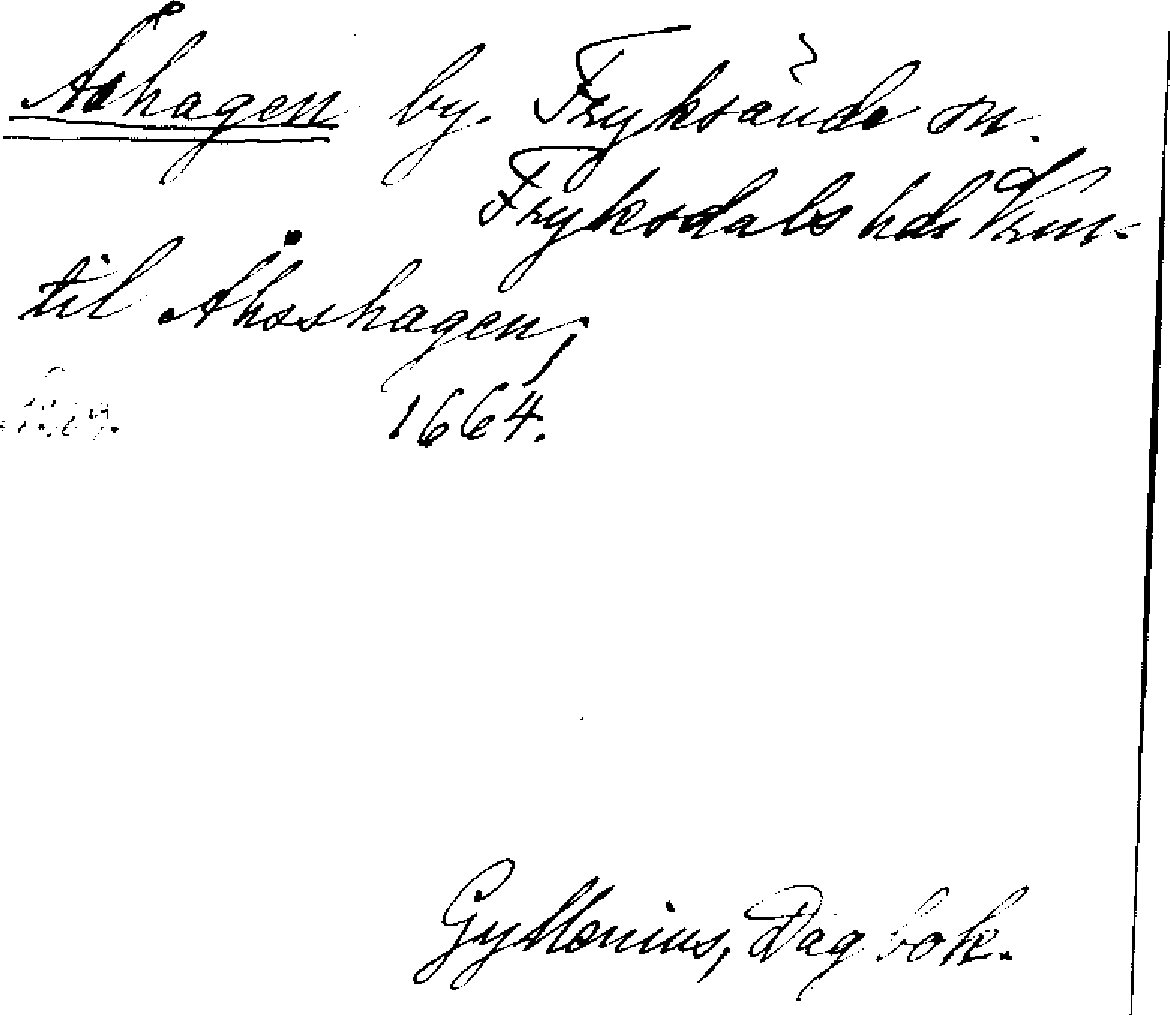 Åshagen by. Fryksände sn.
Fryksdals hd Vrm.
til Åhsshagen,
1664.
Gyllenius, Dagbok.